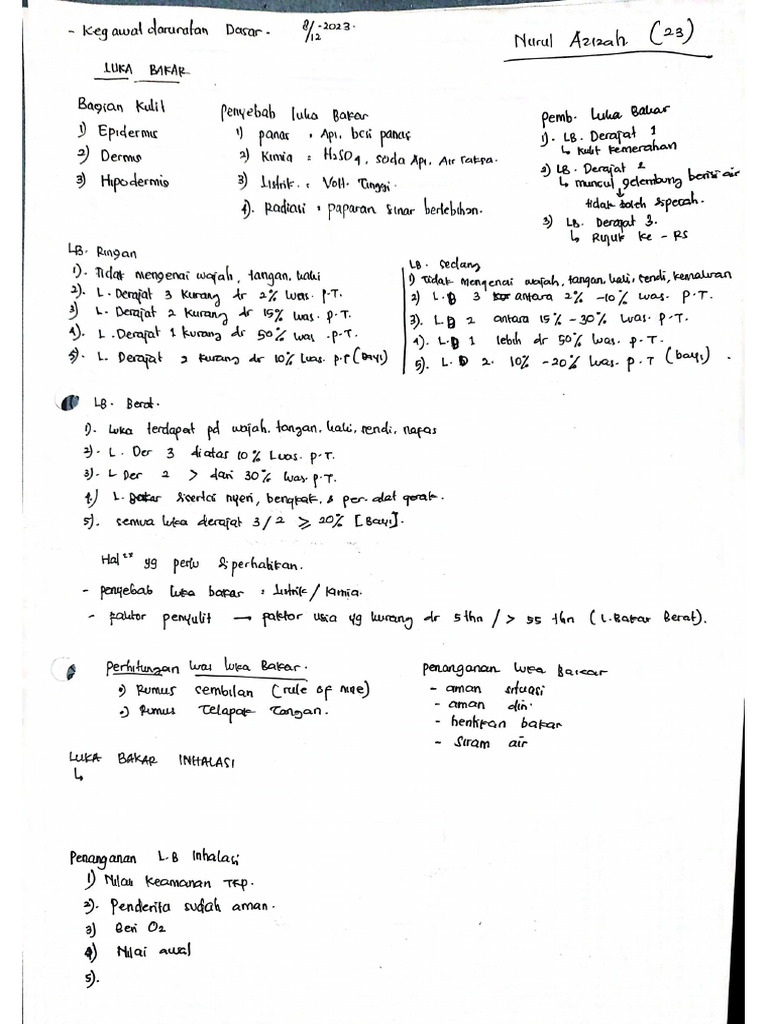 - Kegawatdaruratan Dasar. 8/12-2023.
Nurul Azizah (23)
LUKA BAKAR
Bagian Kulit
1) Epidermis
2) Dermis
3) Hipodermis
Penyebab luka Bakar
1) panas : Api, besi panas
2) Kimia : H2SO4, soda Api, Air raksa.
3) Listrik : Volt. Tinggi.
4). Radiasi : paparan sinar berlebihan.
Pemb. Luka Bakar
1). LB. Derajat 1
↳ kulit kemerahan
2) LB. Derajat 2
↳ muncul gelembung berisi air
↓
tidak boleh dipecah.
3) LB. Derajat 3.
↳ Rujuk ke - RS
LB. Ringan
1). Tidak mengenai wajah, tangan, kaki
2). L. Derajat 3 kurang dr 2% luas. P.T.
3) L. Derajat 2 kurang dr 15% luas. p.T.
4). L. Derajat 1 kurang dr 50% luas .p.T.
5). L. Derajat 2 kurang dr 10% luas. p.T (Bayi)
LB. Sedang
1) Tidak mengenai wajah, tangan, kaki, sendi, kemaluan
2) L.D 3 antara 2% -10% luas. p.T.
3). L.D 2 antara 15% -30% luas. p.T.
4). L.D 1 lebih dr 50% luas. p.T.
5). L.D 2. 10% -20% luas. p.T (bayi).
LB. Berat.
1). Luka terdapat pd wajah, tangan, kaki, sendi, nafas
2). L. Der 3 diatas 10% Luas. p.T.
3). L Der 2 > dari 30% luas. p.T.
4.) L. Bakar disertai nyeri, bengkak, & per. alat gerak.
5). semua luka derajat 3/2 ⩾ 20% [Bayi].
Hal" yg perlu diperhatikan.
- penyebab luka bakar : Listrik / Kimia.
- faktor penyulit → faktor usia yg kurang dr 5 thn / > 55 thn (L.Bakar Berat).
Perhitungan luas luka Bakar.
•) Rumus sembilan (rule of nine)
•) Rumus Telapak Tangan.
Penanganan luka Bakar
- aman situasi
- aman diri
- hentikan bakar
- Siram air
LUKA BAKAR INHALASI
↳
Penanganan L.B Inhalasi
1) Nilai Keamanan TKP.
2). Penderita sudah aman.
3) Beri O2
4) Nilai awal
5).